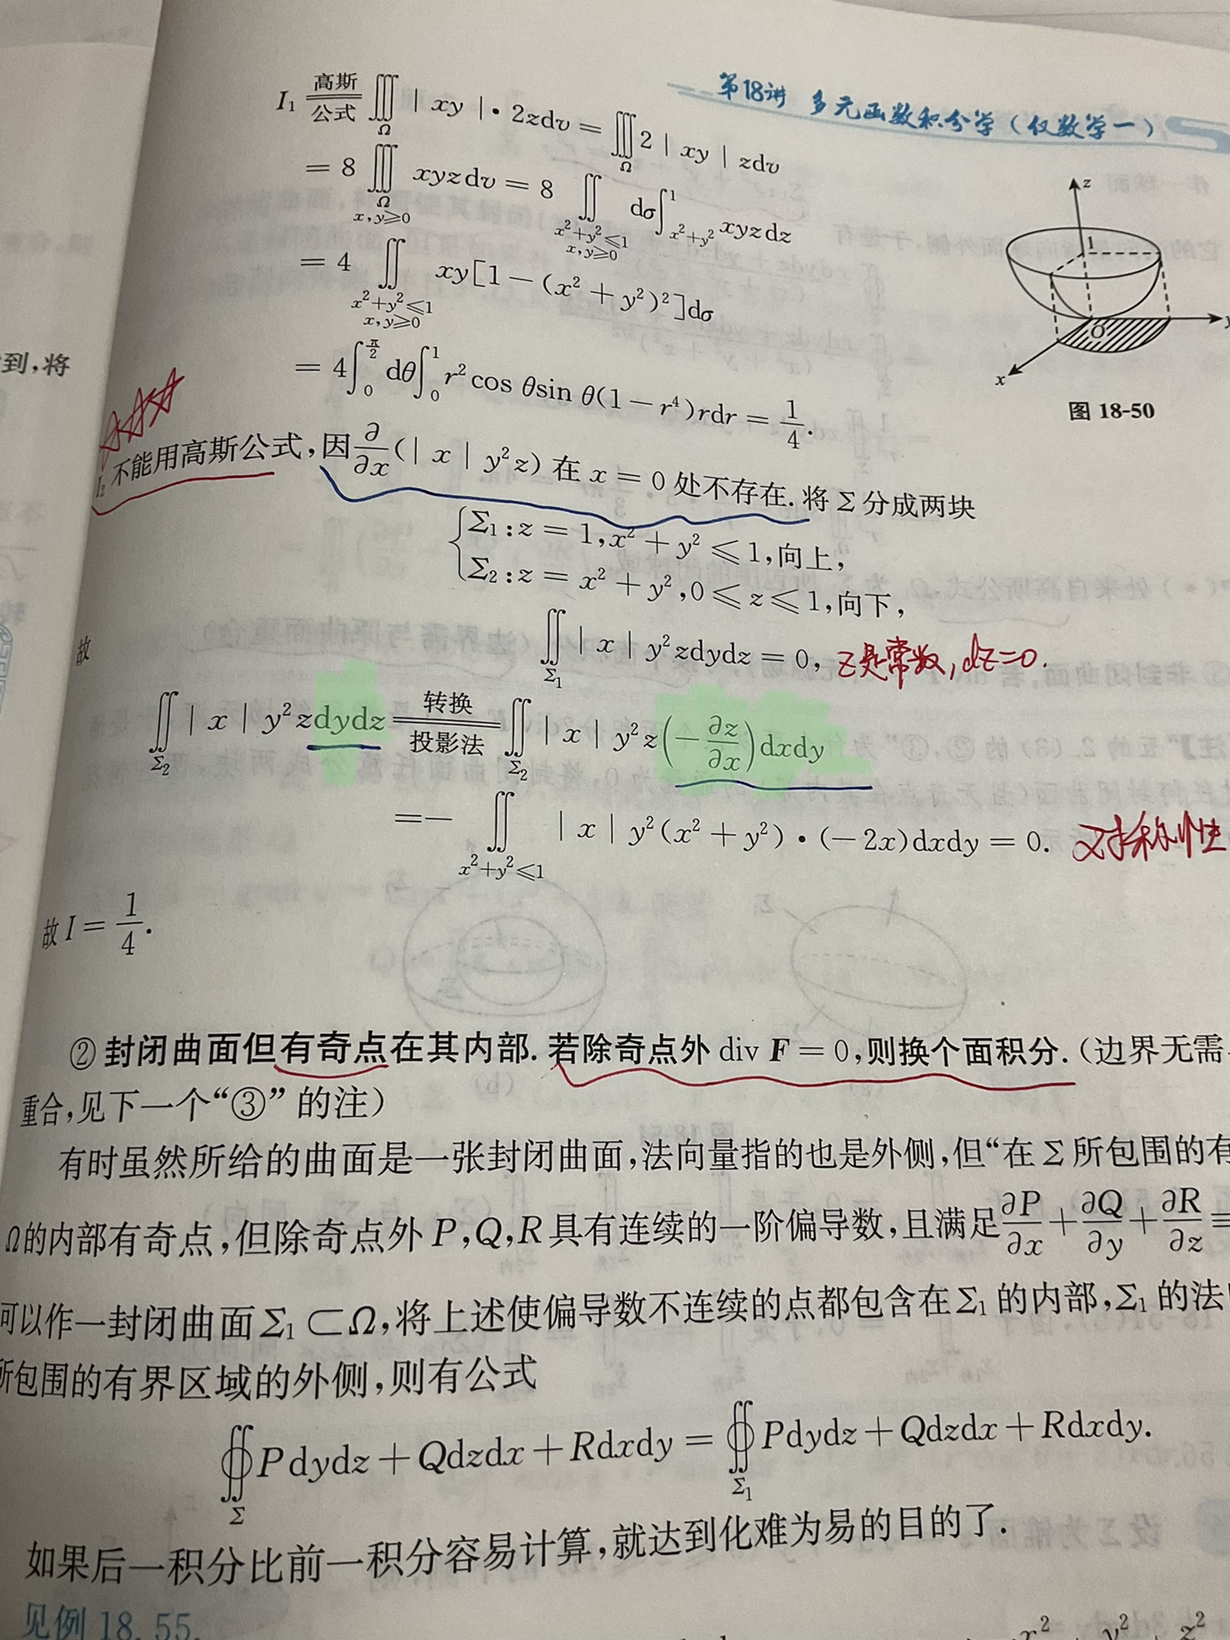 第18讲 多元函数积分学（仅数学一）
I₁ \xlongequal[公式]{高斯} ∭_Ω | xy |·2zdv = ∭_Ω 2 | xy | zdv
= 8 ∭_{Ω, x,y≥0} xyzdv = 8 ∬_{x²+y²≤1, x,y≥0} dσ ∫_{x²+y²}^{1} xyzdz
= 4 ∬_{x²+y²≤1, x,y≥0} xy[1-(x²+y²)²]dσ
= 4∫_0^{π/2} dθ∫_0^1 r²cos θsin θ(1-r⁴)rdr = 1/4.
z
1
O
x
图 18-50
到,将
I₂ 不能用高斯公式,因 ∂/∂x (| x | y²z) 在 x = 0 处不存在. 将 Σ 分成两块
{Σ₁: z = 1, x² + y² ≤ 1,向上,
Σ₂: z = x² + y², 0 ≤ z ≤ 1,向下,
故 ∬_{Σ₁} | x | y²zdydz = 0, z是常数, dz=0.
∬_{Σ₂} | x | y²zdydz \xlongequal[投影法]{转换} ∬_{Σ₂} | x | y²z(-∂z/∂x)dxdy
=- ∬_{x²+y²≤1} | x | y²(x² + y²)·(-2x)dxdy = 0. 对称性
故 I = 1/4.
② 封闭曲面但有奇点在其内部. 若除奇点外 div F = 0,则换个面积分.(边界无需
重合,见下一个“③”的注)
有时虽然所给的曲面是一张封闭曲面,法向量指的也是外侧,但“在 Σ 所包围的有
Ω的内部有奇点,但除奇点外 P,Q,R 具有连续的一阶偏导数,且满足 ∂P/∂x + ∂Q/∂y + ∂R/∂z ≡
可以作一封闭曲面 Σ₁ ⊂ Ω,将上述使偏导数不连续的点都包含在 Σ₁ 的内部, Σ₁ 的法
所包围的有界区域的外侧,则有公式
∯_Σ Pdydz + Qdzdx + Rdxdy = ∯_{Σ₁} Pdydz + Qdzdx + Rdxdy.
如果后一积分比前一积分容易计算,就达到化难为易的目的了.
见例 18.55.
x² y² z²